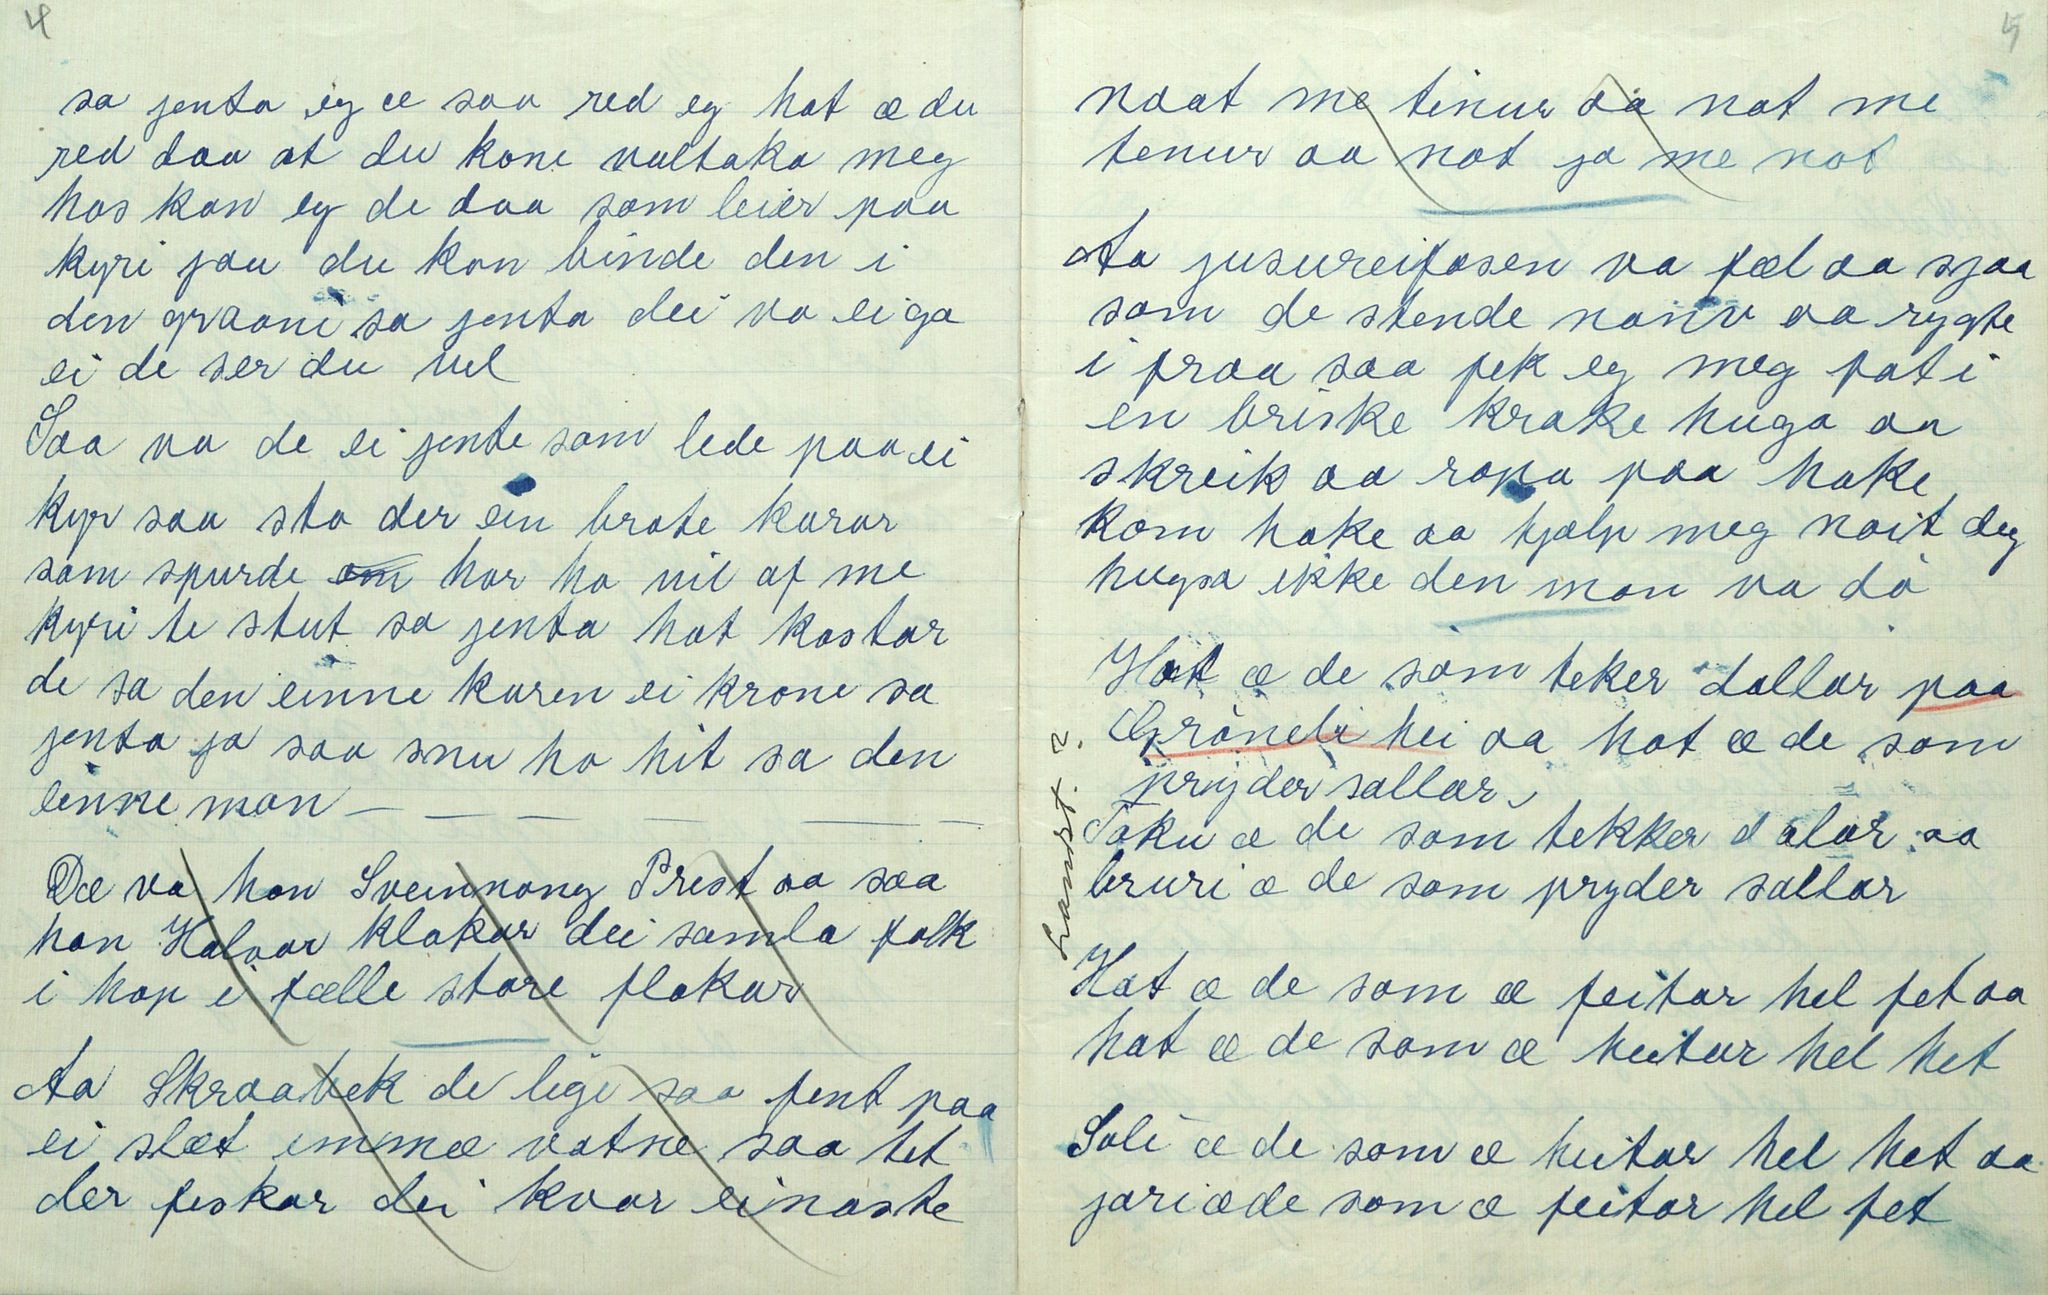 4
sa jenta eg æ saa red eg hat æ du
red daa at du kone valtaka meg
hos kan eg de daa som leier paa
kyri jau du kan binde den i
den graane sa jenta dei va eiga
ei de ser du vel
Saa va de ei jente som lede paa ei
kyr saa sto der ein brate karar
som spurde om hor ho vil af me
kyri te stut sa jenta hat kostar
de sa den einne karen ei krone sa
jenta ja saa snu ho hit sa den
einne man — — — — — —
Dæ va han Sveinnong Prest aa saa
han Halvor klokar dei samla folk
i hop i fælle store flokar
Aa Skraabek de lige saa fent paa
ei slæt emmæ vatne saa tet
der feskar dei kvar einaste
5
naat me tinur aa nat me
tenur aa nat ja me nat
Aa jusureifosen va fæl aa sjaa
som de stende nanv aa rygte
i fraa saa fek eg meg fat i
en briske krake huga aa
skreik aa ropa paa hake
kom hake aa hjælp meg noit deg
hugsa ikke den man va då
Hat æ de som teker dallar paa
Grøneli hei aa hat æ de som
pryder sallar
Toku æ de som tekker dalar aa
bruri æ de som pryder sallar
Hat æ de som æ feitar hel fet aa
hat æ de som æ heitar hel het
Soli æ de som æ heitar hel het aa
jori æ de som æ feitar hel fet